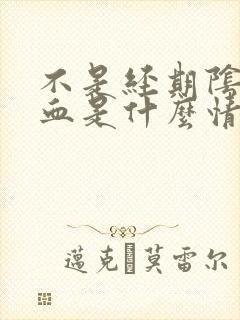 不是經期陰
血是什麼情
邁克·莫雷尔